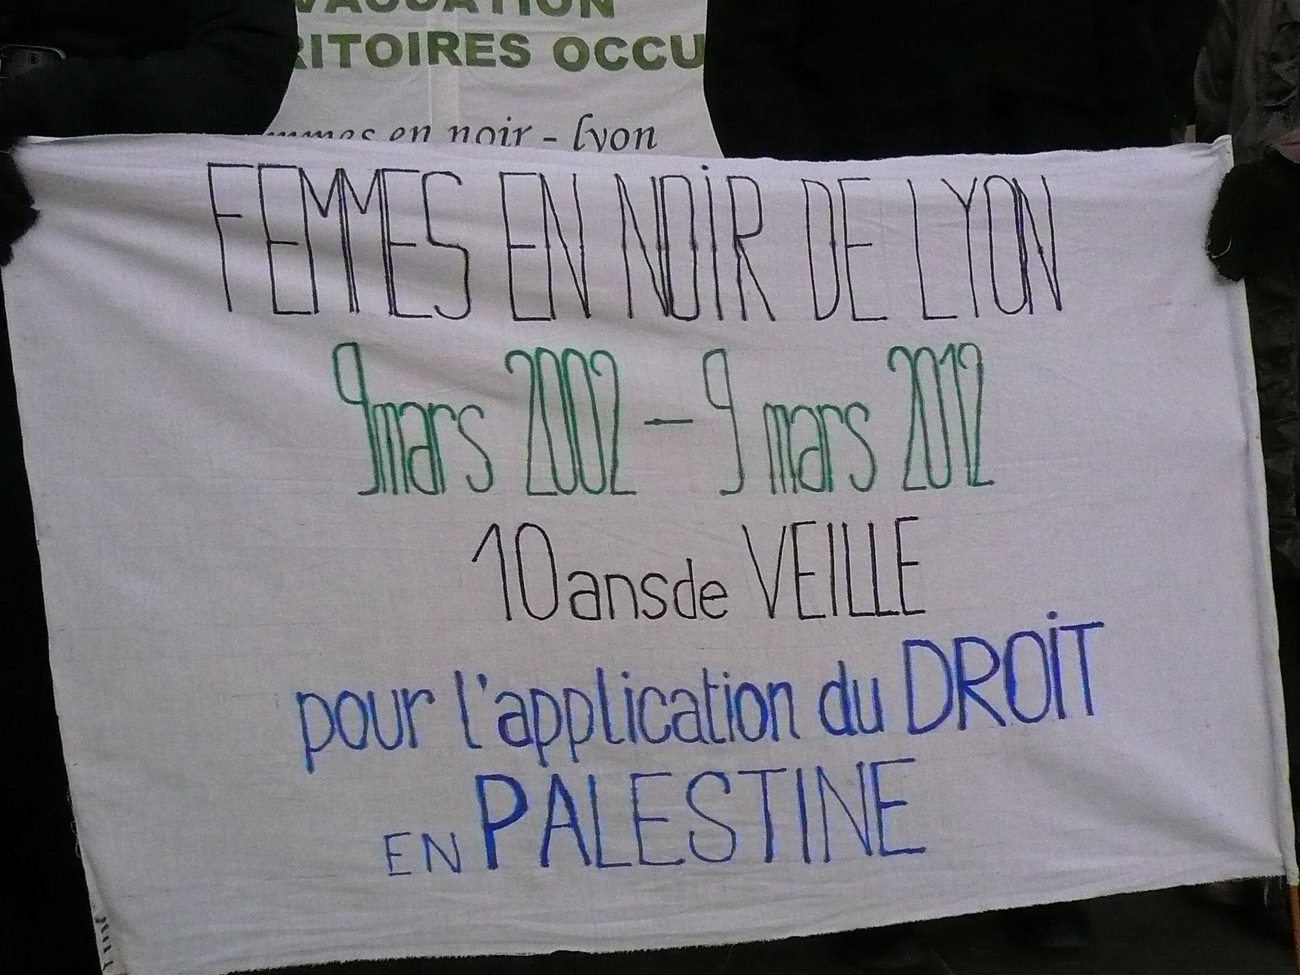 ÉVACUATION
RITOIRES OCCU
mmes en noir - Lyon
FEMMES EN NOIR DE LYON
9 mars 2002 - 9 mars 2012
10 ans de VEILLE
pour l'application du DROIT
EN PALESTINE